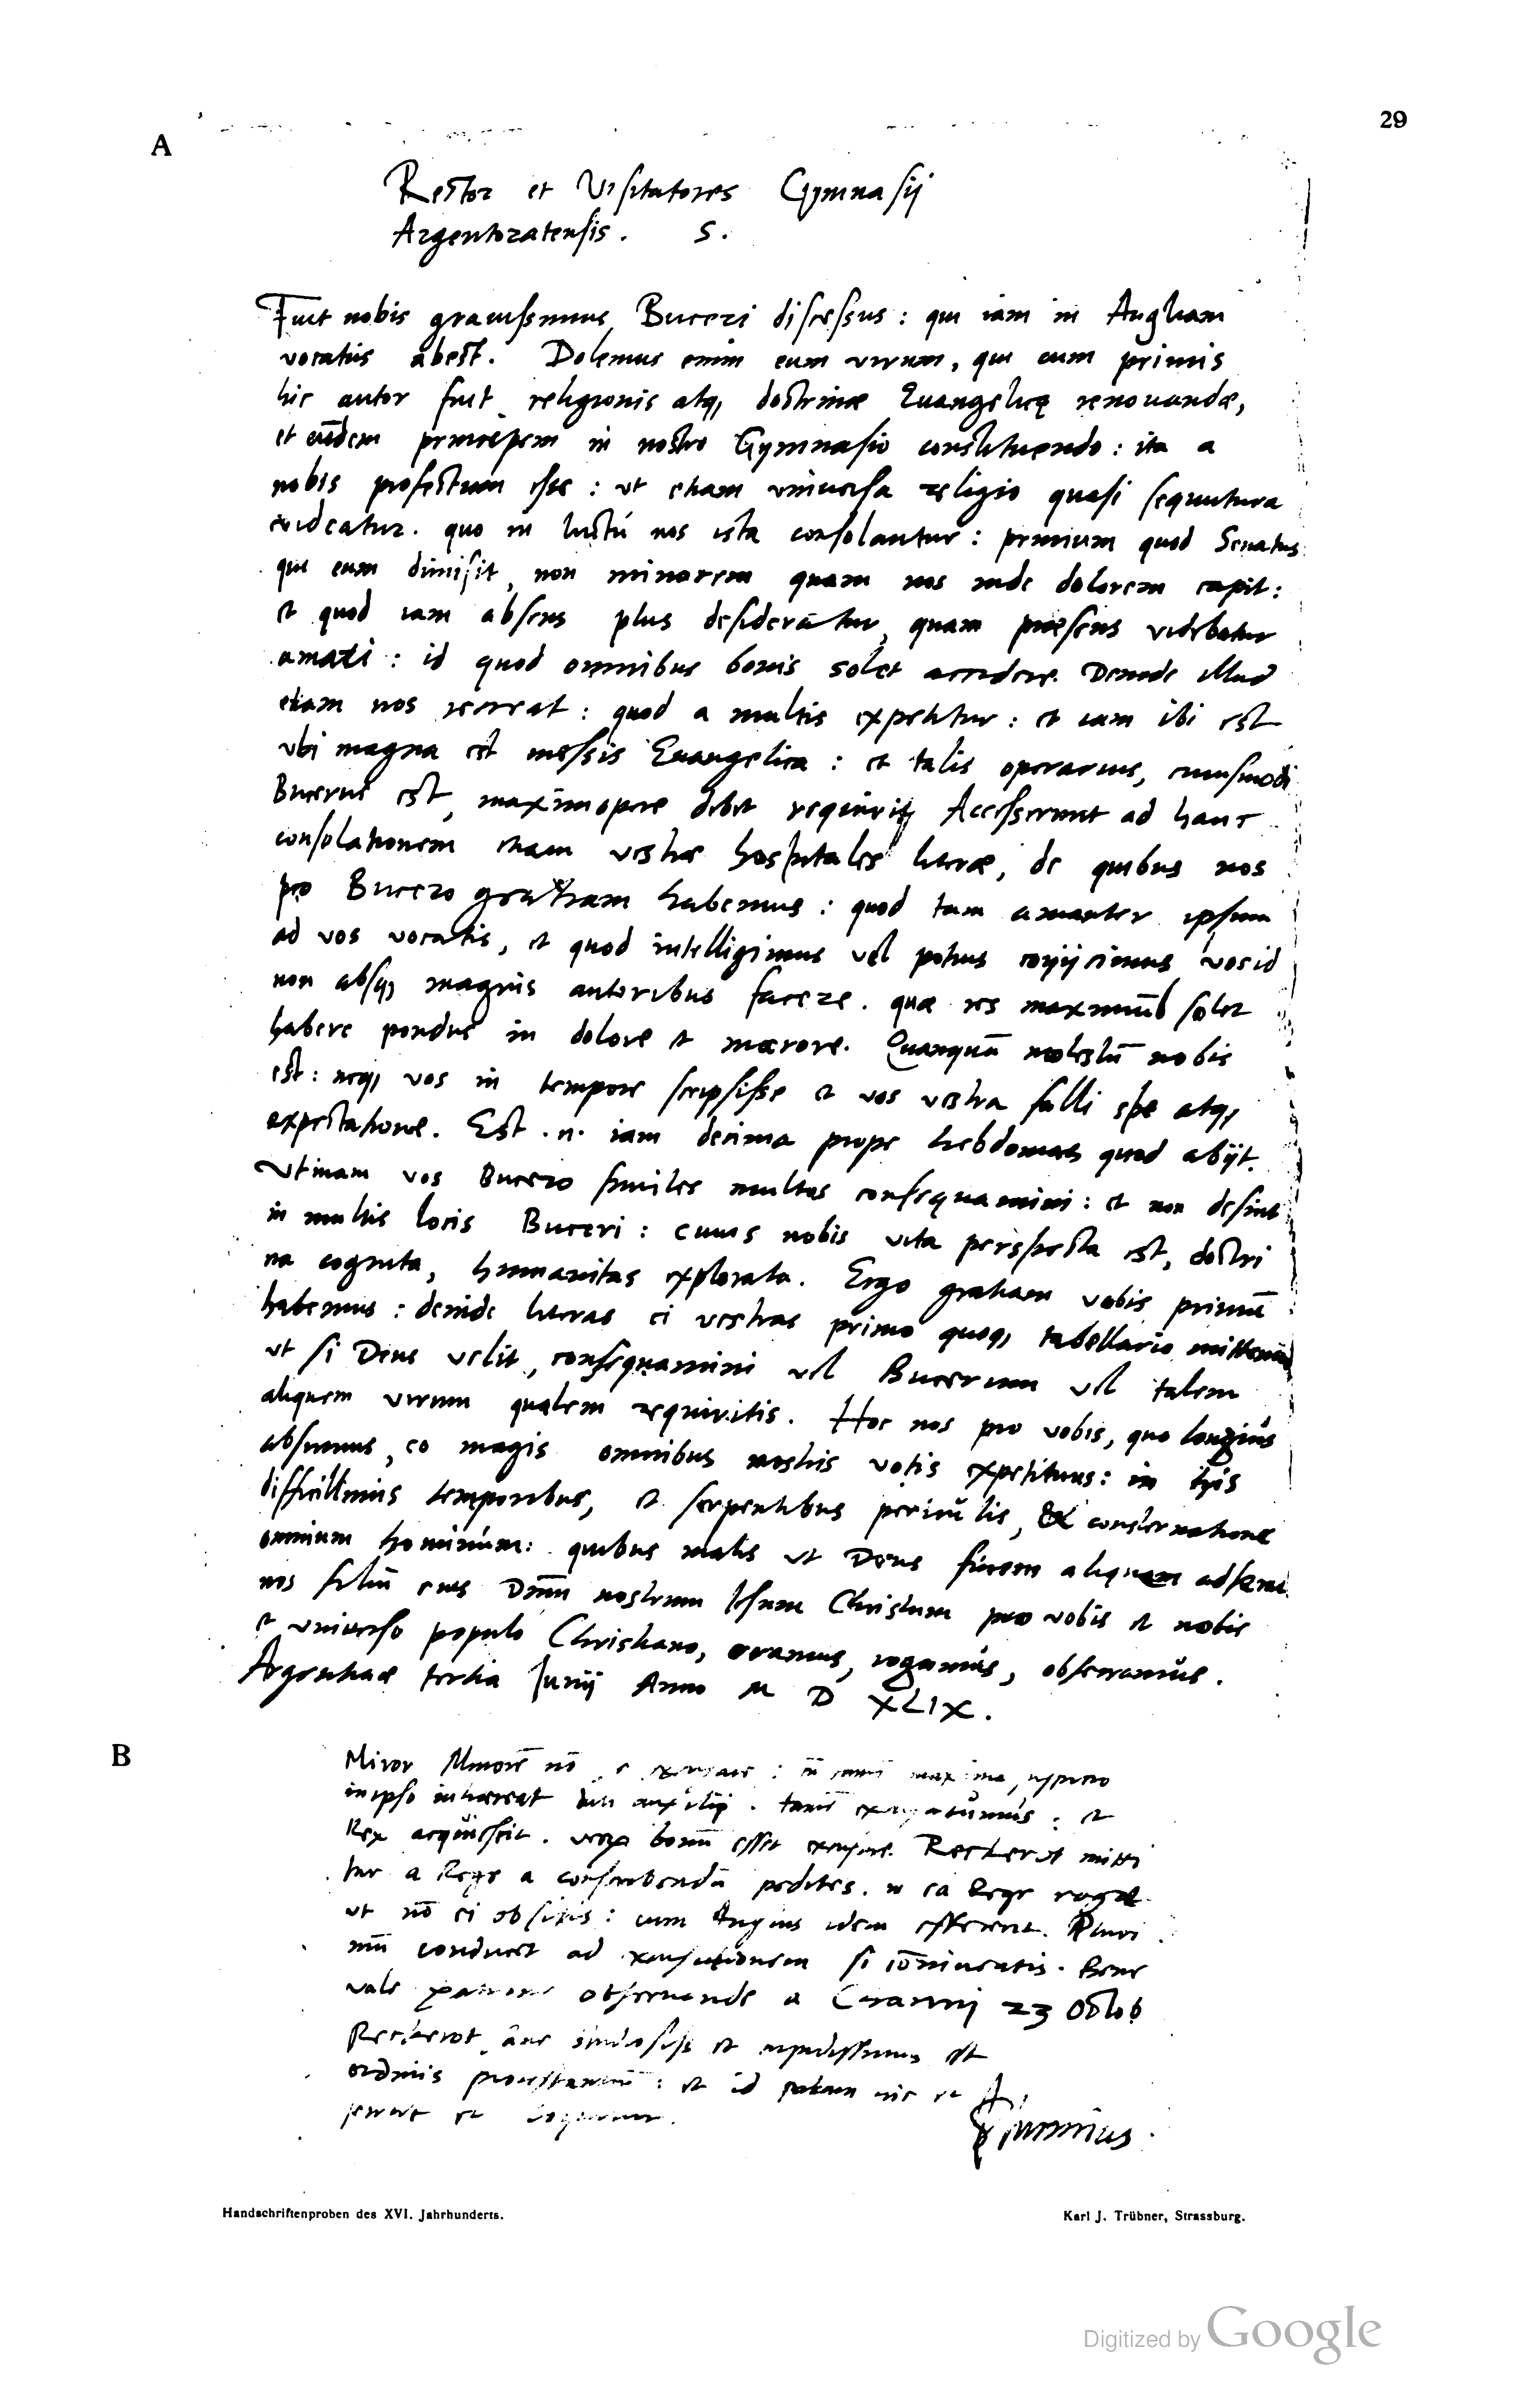 29
A
Rector et Visitatores Gymnasij
Argentoratensis. S.
Fuit nobis gravissimus Buceri discessus: qui iam in Angliam
vocatus abest. Dolemus enim eum virum, qui cum primis
hic autor fuit religionis atq, doctrinæ Euangelicę renouandæ,
et eūdem principem in nostro Gymnasio constituendo: ita a
nobis profectum esse: ut etiam vniuersa religio quasi sequutura
videatur. quo in luctú nos ista consolantur: primum quod Senatus
qui eum dimisit, non minorem quam nos inde dolorem capit:
et quod iam absens plus desideratur, quam præsens videbatur
amari: id quod omnibus bonis solet accidere. Deinde illud
etiam nos recreat: quod a multis expetitur: et iam ibi est
vbi magna est messis Euangelica: et talis operarius, cuiusmodi
Bucerus est, maximopere debet requiri. Accesserunt ad hanc
consolationem etiam vestræ hospitales literæ, de quibus nos
pro Bucero gratiam habemus: quod tam amanter ipsum
ad vos vocatis, et quod intelligimus vel potius coniicimus vos id
non absq, magnis autoribus facere. quæ res maximū solet
habere pondus in dolore et mærore. Quanquā molestū nobis
est: neq, vos in tempore scripsisse et vos vestra falli spe atq,
expectatione. Est .n. iam decima prope hebdomas quod abijt.
Vtinam vos Bucero similes multos consequamini: et non desint
in multis locis Buceri: cuius nobis vita perspecta est, doctri
na cognita, humanitas explorata. Ergo gratiam vobis primū
habemus: deinde literas ei vestras primo quoq, tabellario mittemus
ut si Deus velit, consequamini vel Bucerum vel talem
aliquem virum qualem requiritis. Hoc nos pro vobis, quo longius
absumus, eo magis omnibus nostris votis expetimus: in his
difficillimis temporibus, et serpentibus periculis, & consternatione
omnium hominum: quibus malis ut Deus finem aliquem adferat
nos filiū eius Dnm̄ nostrum Iesum Christum pro vobis et nobis
et vniuerso populo Christiano, oramus, rogamus, obsecramus.
Argentinæ tertia Junij Anno M D XLIX.
B
Miror nō : maxima,
in ipso inhæreat auxilij . tamē : et
Rex acquiescit. bonū esset Reckerot mitti
tur a Rege a conscribendū pedites. ea Rege
ut nō ei obsitis: cum idem efferent. Pluri
mū conducet ad si cōniueatis. Bene
vale obseruande a 23 Octob
Reckerot et est
ordinis protestantiū: et id
Sturmius.
Handschriftenproben des XVI. Jahrhunderts.
Karl J. Trübner, Strassburg.
Digitized by Google